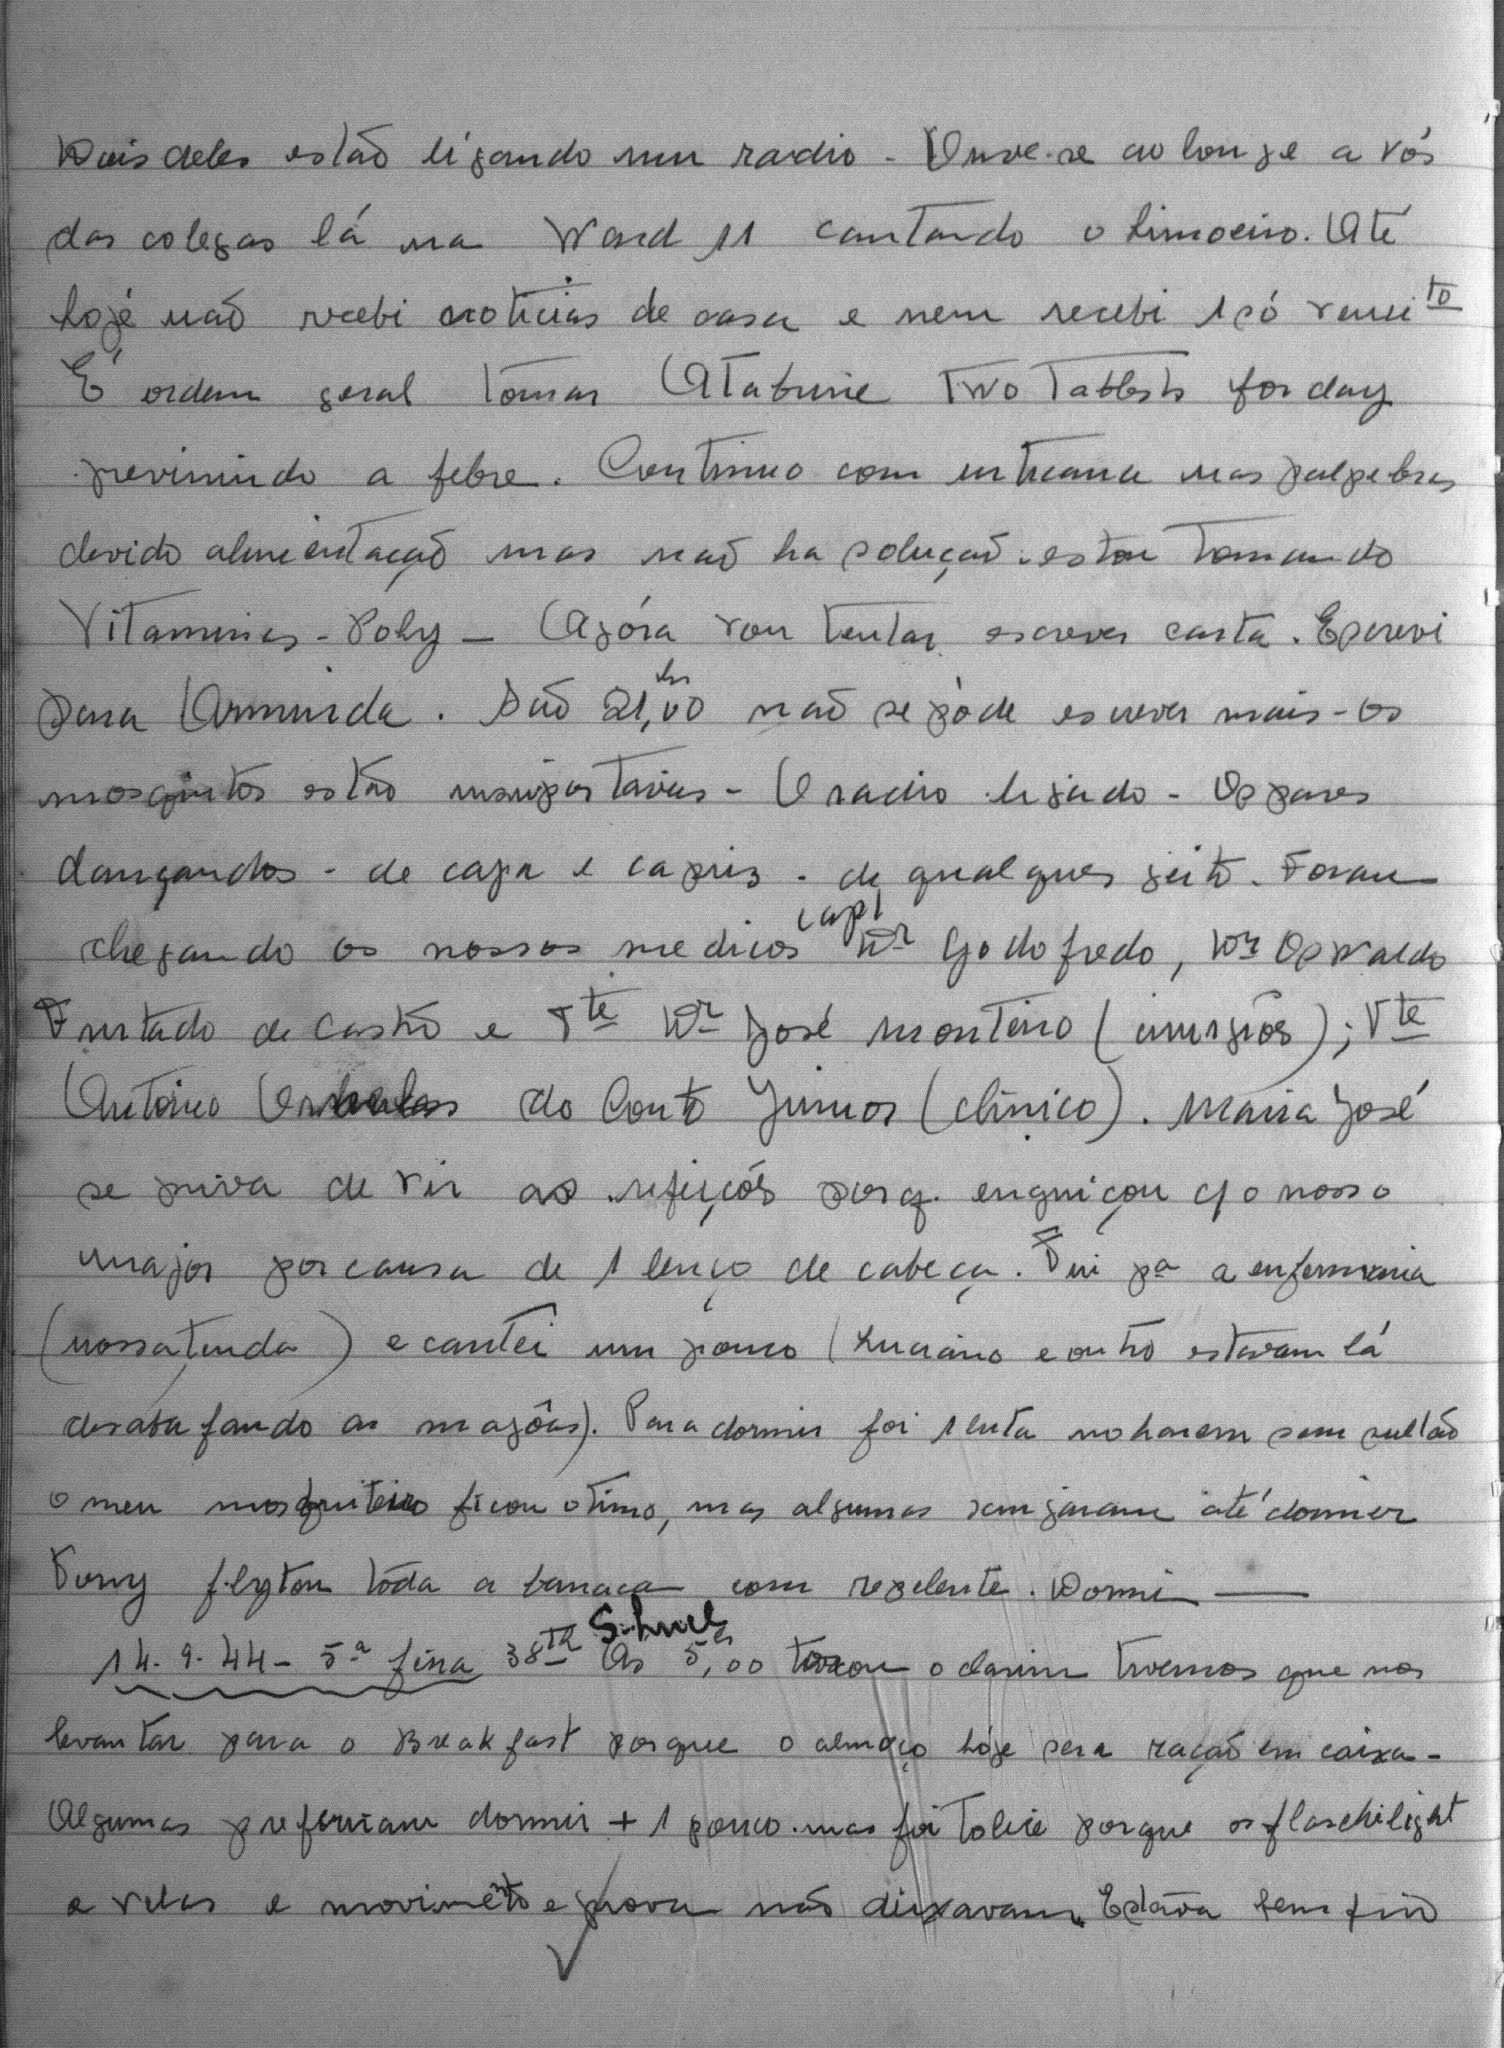 Dois deles estão ligando um radio - Ouve-se ao longe a vós
das colegas lá na Ward 11 cantando o Limoeiro. Até
hoje não recebi noticias de casa e nem recebi 1 só
É ordem geral tomar Atabrine Two Tablets for day
previnindo a febre. Continuo com urticaria nas palpebras
devido alimentação mas não ha solução. estou tomando
Vitaminas - Poly - Agóra vou tentar escrever carta. Escrevi
para Arminda. São 21,00 hs não se póde escrever mais - os
mosquitos estão insuportaveis - O radio ligado - Os pares
dançando - de capa e - de qualquer jeito. Foram
chegando os nossos medicos Capt Dr Godofredo, Dr Oswaldo
Furtado de Castro e Tte Dr José Monteiro (cirurgiões); Tte
Antonio do Couto Junior (clínico). Maria José
se priva de vir as refeições porq. enguiçou c/ o nosso
major por causa de 1 lenço de cabeça. Fui pa a enfermaria
(nossa tenda) e cantei um pouco (Luciano e outro estavam lá
desabafando as magôas). Para dormir foi 1 luta no harem sem sultão
o meu mosquiteiro ficou otimo, mas algumas até dormir
Tony flytou tôda a barraca com repelente. Dormi —
14-9-44 - 5ª feira 38th As 5,00 hs tocou o clarim tivemos que nos
levantar para o Breakfast porque o almoço hóje sera ração em caixa -
Algumas preferiam dormir + 1 pouco mas foi tolice porque os flaschilight
e velas e movimento e prova não deixavam. Estáva bem frio